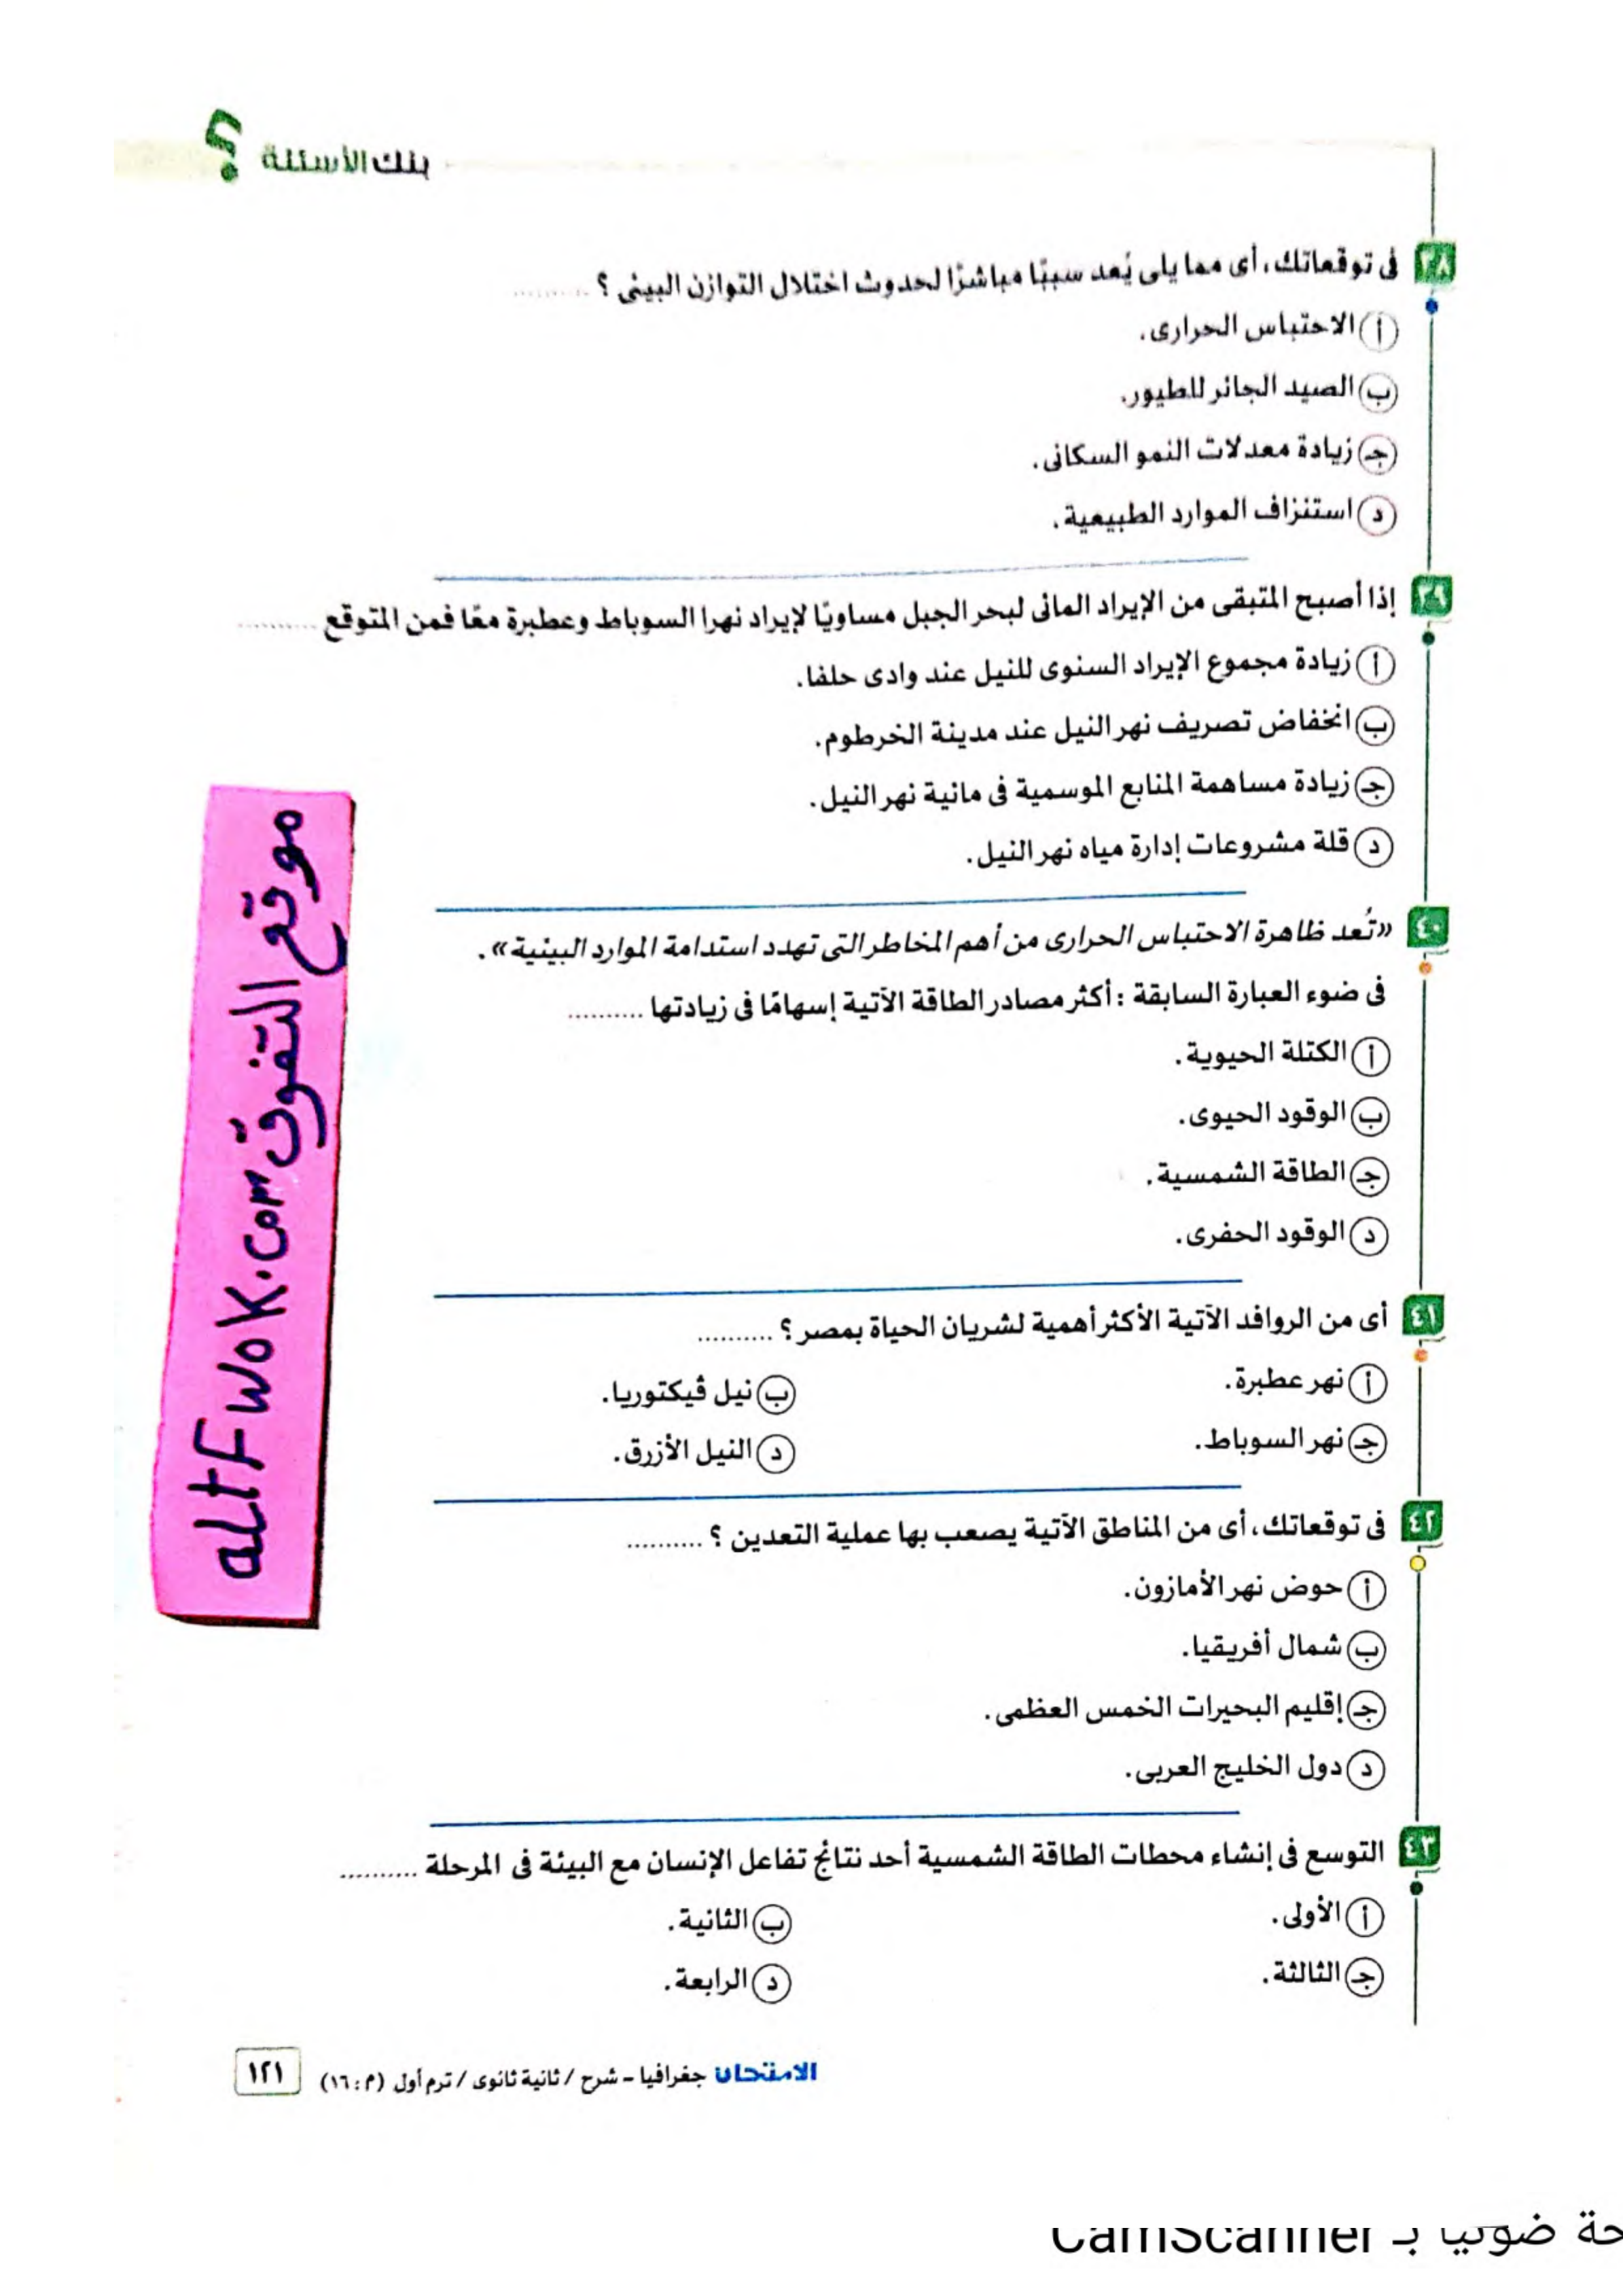 بنك الأسئلة ؟
٣٨ فى توقعاتك، أى مما يلى يُعد سببًا مباشرًا لحدوث اختلال التوازن البيئى ؟ ..........
أ الاحتباس الحرارى.
ب الصيد الجائر للطيور.
ج زيادة معدلات النمو السكانى.
د استنزاف الموارد الطبيعية.
٣٩ إذا أصبح المتبقى من الإيراد المائى لبحر الجبل مساويًا لإيراد نهرا السوباط وعطبرة معًا فمن المتوقع ..........
أ زيادة مجموع الإيراد السنوى للنيل عند وادى حلفا.
ب انخفاض تصريف نهر النيل عند مدينة الخرطوم.
ج زيادة مساهمة المنابع الموسمية فى مائية نهر النيل.
د قلة مشروعات إدارة مياه نهر النيل.
٤٠ «تُعد ظاهرة الاحتباس الحرارى من أهم المخاطر التى تهدد استدامة الموارد البيئية».
فى ضوء العبارة السابقة : أكثر مصادر الطاقة الآتية إسهامًا فى زيادتها ..........
أ الكتلة الحيوية.
ب الوقود الحيوى.
ج الطاقة الشمسية.
د الوقود الحفرى.
٤١ أى من الروافد الآتية الأكثر أهمية لشريان الحياة بمصر ؟ ..........
أ نهر عطبرة. ب نيل ڤيكتوريا.
ج نهر السوباط. د النيل الأزرق.
٤٢ فى توقعاتك، أى من المناطق الآتية يصعب بها عملية التعدين ؟ ..........
أ حوض نهر الأمازون.
ب شمال أفريقيا.
ج إقليم البحيرات الخمس العظمى.
د دول الخليج العربى.
٤٣ التوسع فى إنشاء محطات الطاقة الشمسية أحد نتائج تفاعل الإنسان مع البيئة فى المرحلة ..........
أ الأولى. ب الثانية.
ج الثالثة. د الرابعة.
موقع التفوق altFwok.com
الامتحان جغرافيا - شرح / ثانية ثانوى / ترم أول (م : ١٦) ١٢١
حة ضوئيا بـ CamScanner